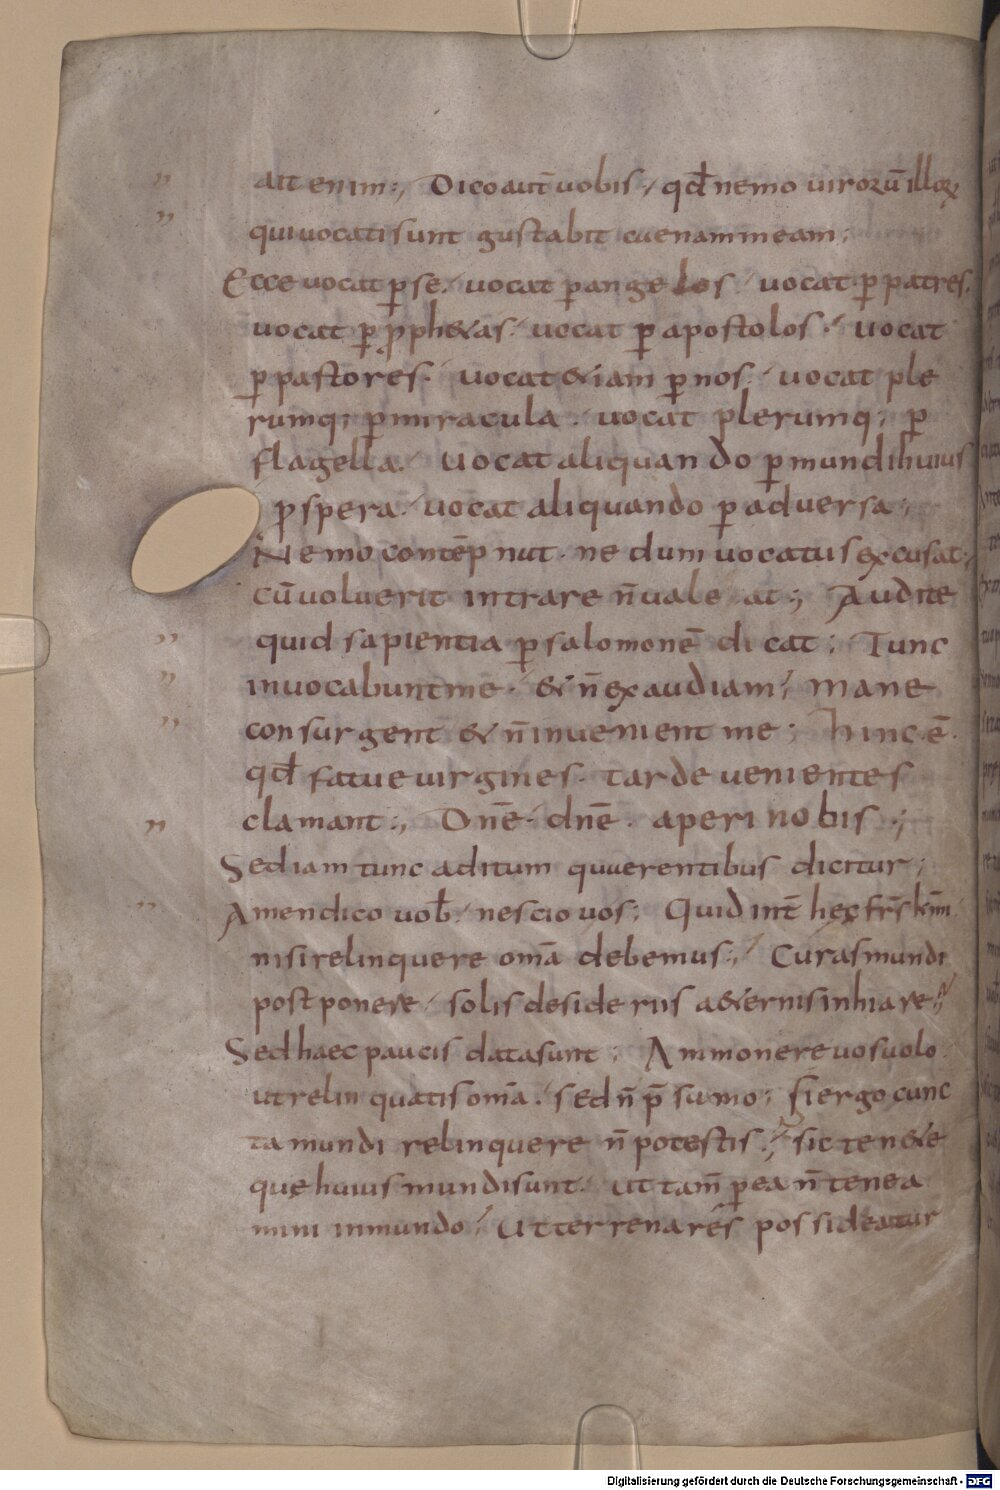 ait enim:, Dico aut̄ uobis, qđ nemo uiroꝝ illoꝝ
qui uocati sunt gustabit caenam meam;
Ecce uocat ꝑ se. uocat ꝑ angelos. uocat ꝑ patres.
uocat ꝑ ꝓph&as. uocat ꝑ apostolos. uocat
ꝑ pastores. uocat &iam ꝑ nos. uocat ple
rumq; ꝑ miracula. uocat plerumq; ꝑ
flagella. uocat aliquando ꝑ mundi huius
ꝓspera. uocat aliquando ꝑ aduersa;
Nemo contēpnut. ne dum uocatus excusat.
cū uoluerit intrare n̄ ualeat; Audite
quid sapientia ꝑ salomonē dicat; Tunc
inuocabunt me. & n̄ exaudiam; mane
consurgent & n̄ inuenient me; Hinc ē.
qđ fatue uirgines. tarde uenientes
clamant:, Dn̄e. dn̄e. aperi nobis.;
Sed iam tunc aditum querentibus dicitur;
Amen dico uob̄. nescio uos; Quid int̄ hec fr̄s km̄i
nisi relinquere om̄a debemus:, Curas mundi
postponere, solis desideriis a&ernis inhiare;
Sed haec paucis data sunt; Ammonere uos uolo
ut relinquatis om̄a. sed n̄ p̄sumo; si ergo cunc
ta mundi relinquere n̄ potestis., sic ten&e
quę huius mundi sunt. ut tam̄ ꝑ ea n̄ tenea
mini in mundo. Ut terrena res possideatur
Digitalisierung gefördert durch die Deutsche Forschungsgemeinschaft - DFG